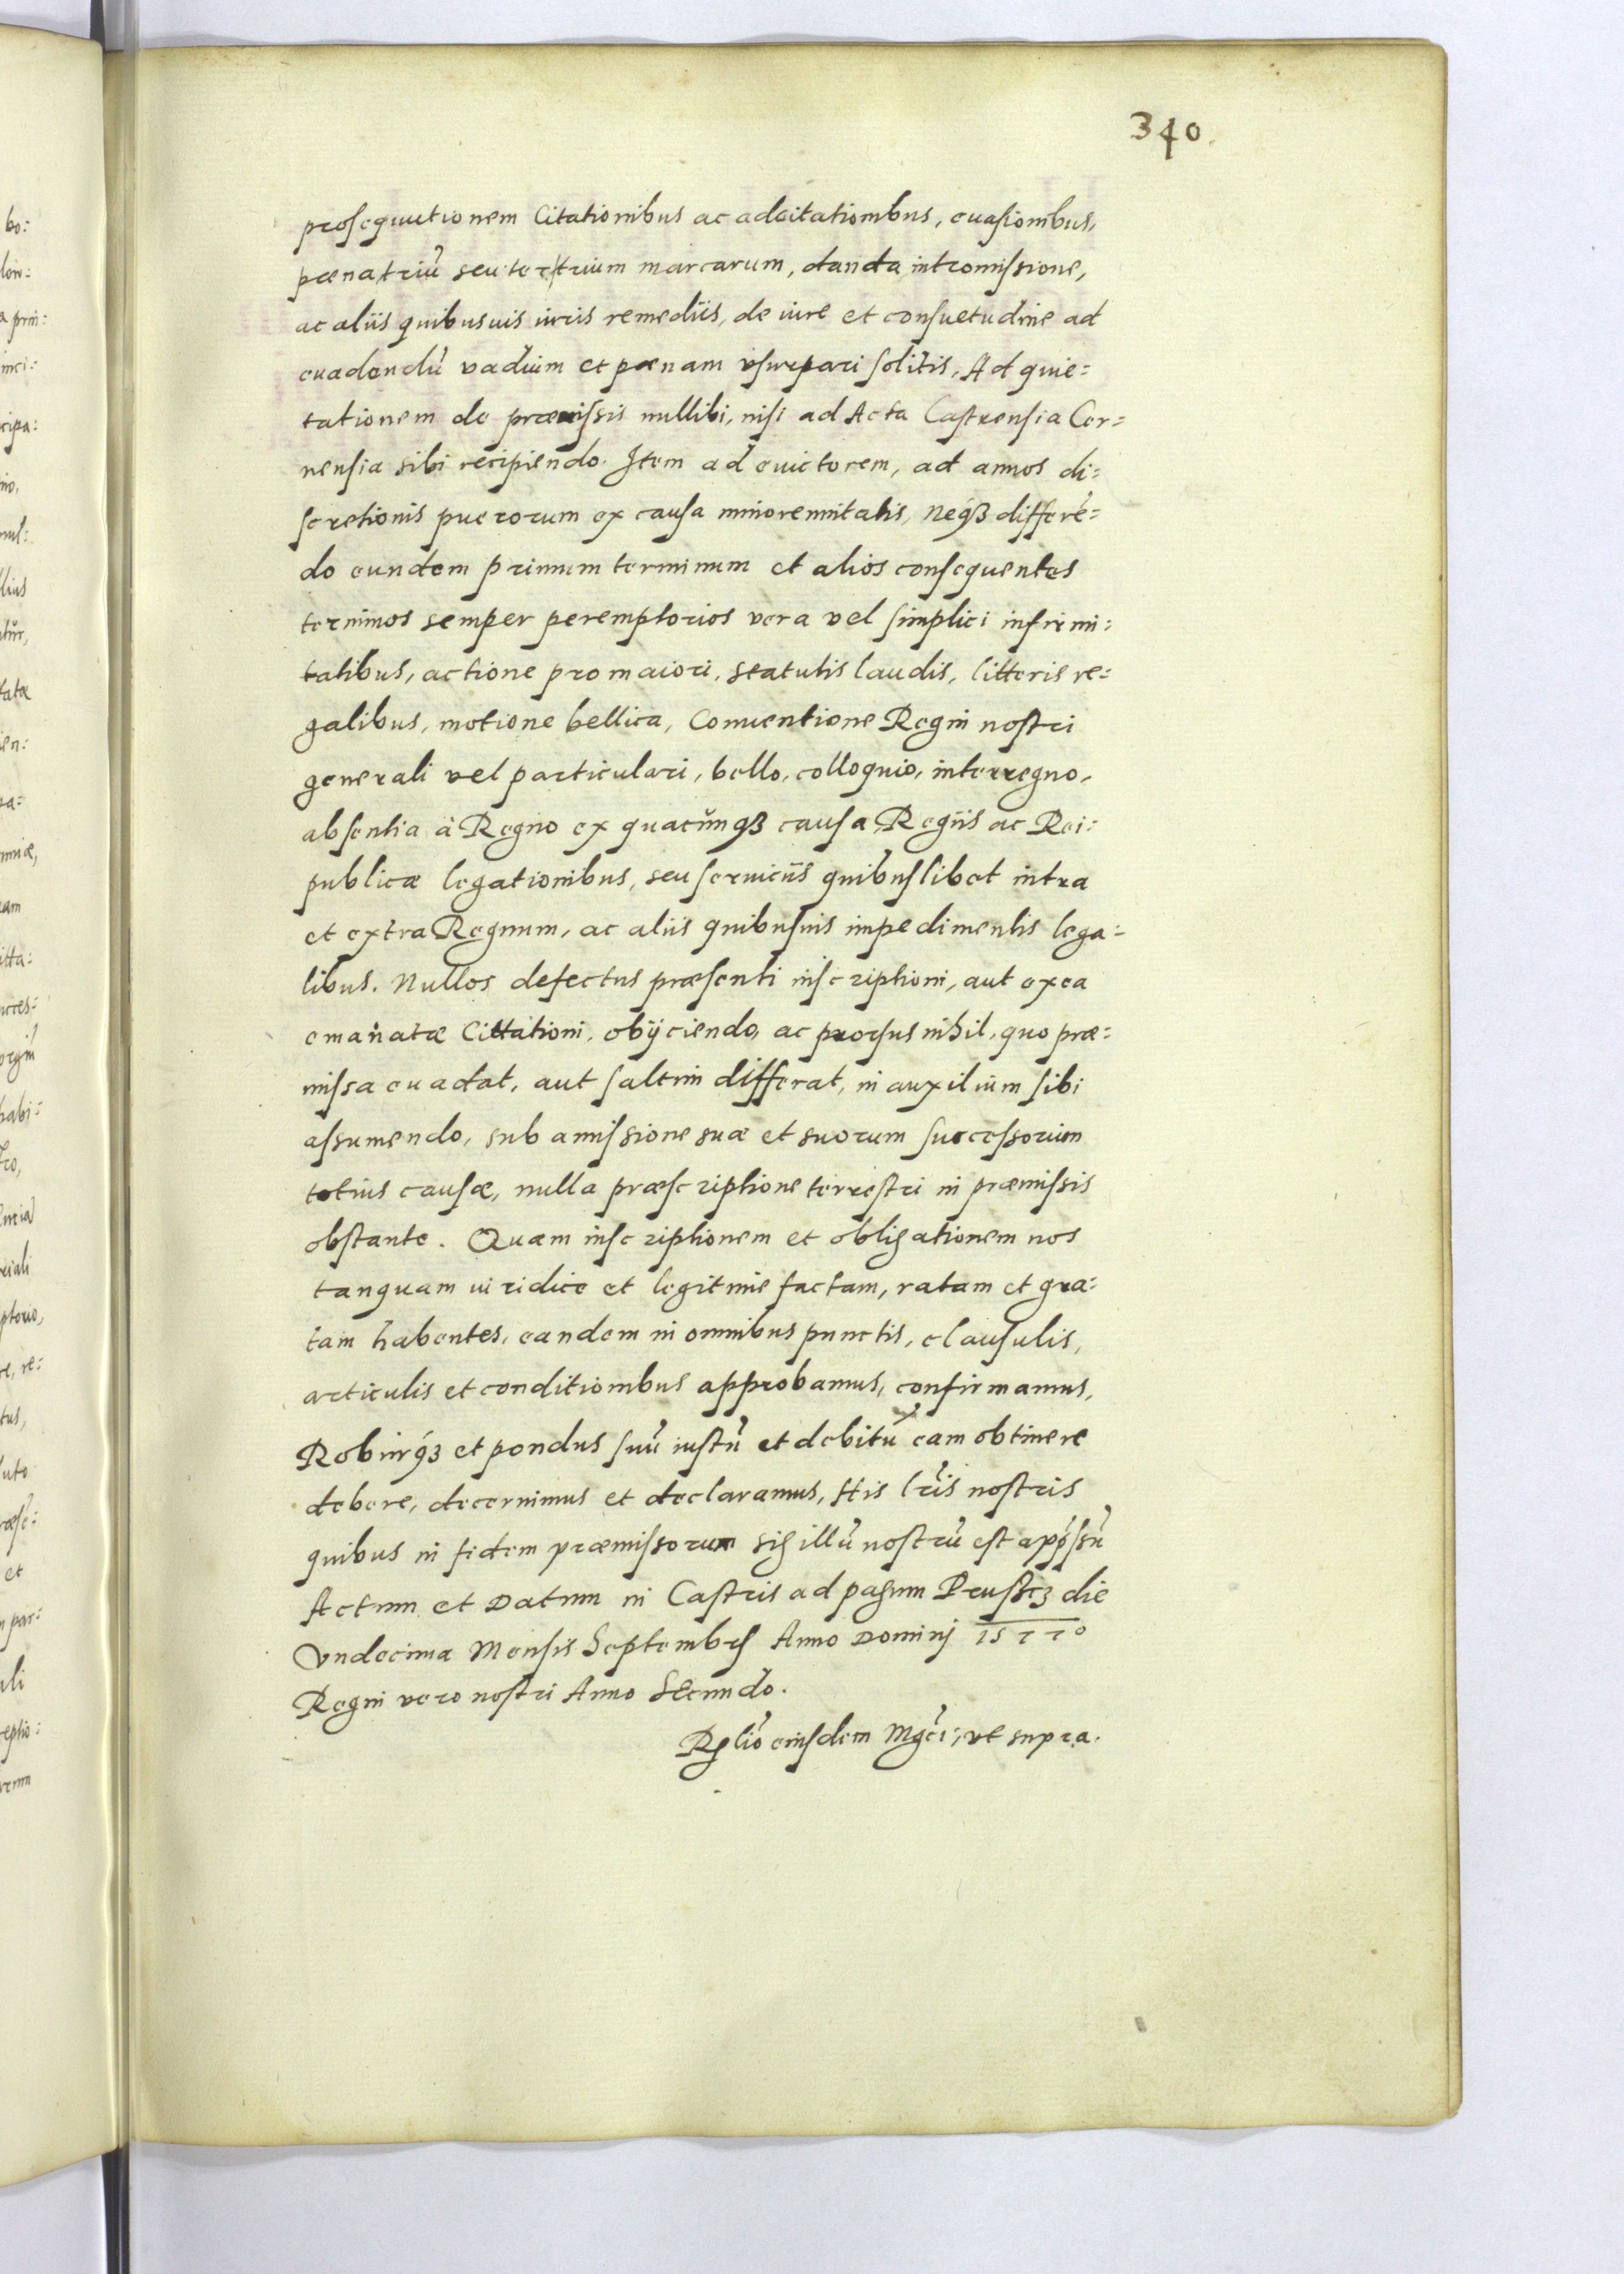 340.
prosequutionem Citationibus ac adcitationibus, euasionibus,
pœna triũ seu ter trium marcarum, danda intromissione,
ac aliis quibusuis iuris remediis, de iure et consuetudine ad
euadendũ vadium et pœnam vsurpari solitis, Ad quie=
tationem de præmissis nullibi, nisi ad Acta Castrensia Cer=
nensia sibi recipiendo. Item ad euictorem, ad annos di=
scretionis puerorum ex causa minorennitatis, neqȝ differẽ=
do eundem primum terminum et alios consequentes
terminos semper peremptorios vera vel simplici infirmi=
tatibus, actione pro maiori, statutis laudis, litteris re=
galibus, motione bellica, Conuentione Regni nostri
generali vel particulari, bello, colloquio, interregno,
absentia à Regno ex quacũnqȝ causa, Regiis ac Rei=
publicæ legationibus, seu seruiciis quibuslibet intra
et extra Regnum, ac aliis quibusuis impedimentis lega=
libus. Nullos defectus præsenti inscriptioni, aut ex ea
emanatæ Cittationi, obijciendo, ac prorsus nihil, quo præ=
missa euadat, aut saltim differat, in auxilium sibi
assumendo, sub amissione suæ et suorum successorum
totius causæ, nulla præscriptione terrestri in præmissis
obstante. Quam inscriptionem et obligationem nos
tanquam iuridice et legitime factam, ratam et gra=
tam habentes, eandem in omnibus punctis, clausulis,
articulis et conditionibus approbamus, confirmamus,
Roburqȝ et pondus suũ iustũ et debitũ eam obtinere
debere, decernimus et declaramus, His lr̃is nostris
quibus in fidem præmissorum sigillũ nostrũ est app̃ssũ
Actum et Datum in Castris ad pagum Prustcz die
Vndecima Mensis Septembrs Anno Dominj 1577o
Regni vero nostri Anno Secundo.
Rẽlio eiusdem Mgc̃i, vt supra.